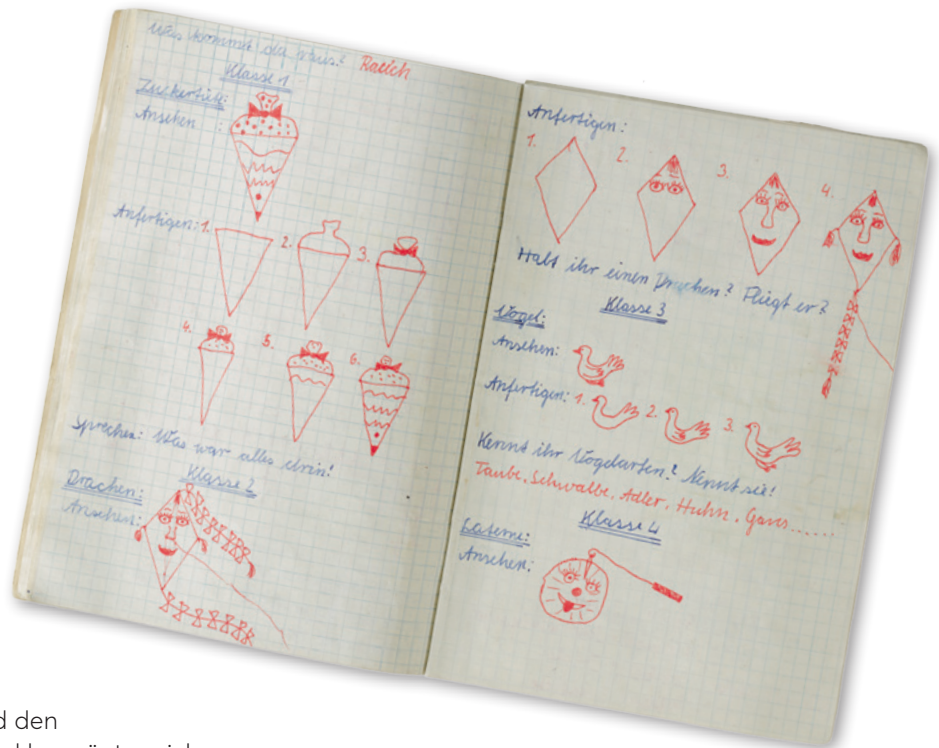 Was kommt da raus? Rauch
Klasse 1
Zuckertüte:
Ansehen :
Anfertigen: 1. 2. 3.
4. 5. 6.
Sprechen: Was war alles drin?
Klasse 2
Drachen:
Ansehen:
Anfertigen:
1. 2. 3. 4.
Habt ihr einen Drachen? Fliegt er?
Klasse 3
Vogel:
Ansehen:
Anfertigen: 1. 2. 3.
Kennt ihr Vogelarten? Nennt sie!
Taube, Schwalbe, Adler, Huhn, Gans.....
Klasse 4
Laterne:
Ansehen:
d den